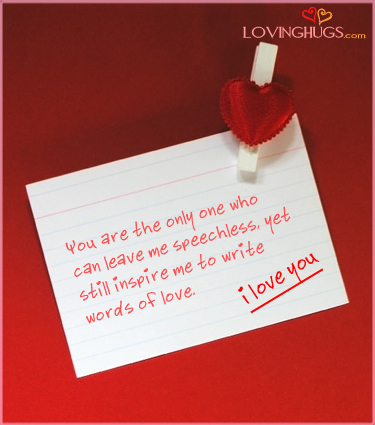 LOVINGHUGS.com
You are the only one who
can leave me speechless, yet
still inspire me to write
words of love.
i love you